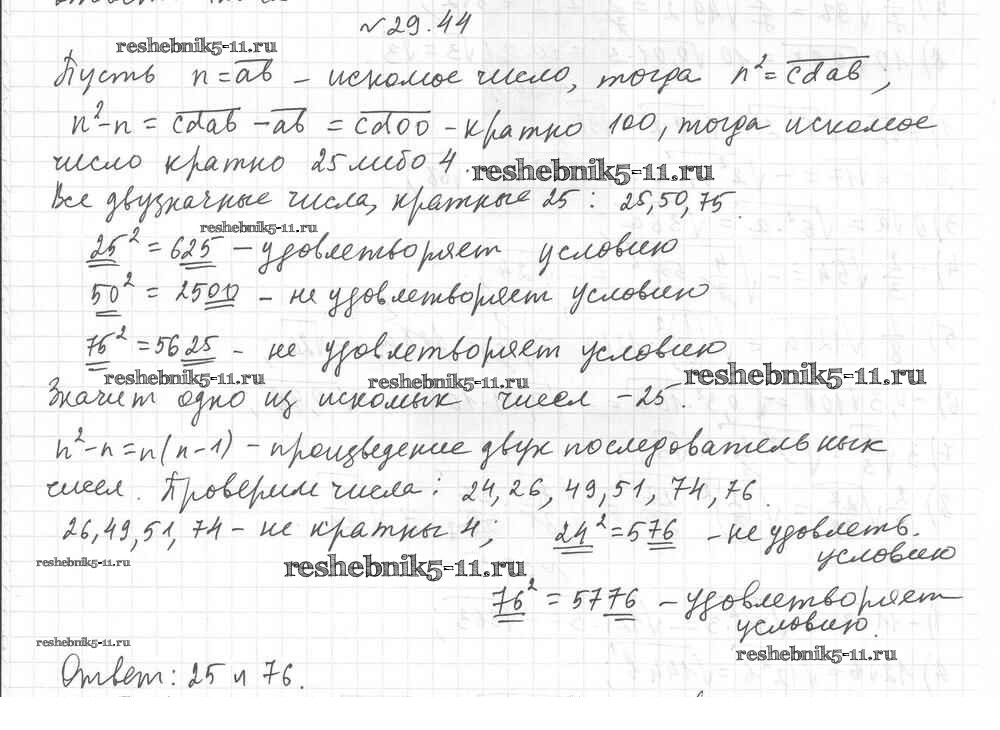 №29.44
reshebnik5-11.ru
Пусть n = ab – искомое число, тогда n² = cdab ;
n² – n = cdab – ab = cd00 – кратно 100, тогда искомое
число кратно 25 либо 4.
reshebnik5-11.ru
Все двузначные числа, кратные 25 : 25, 50, 75.
reshebnik5-11.ru
25² = 625 – удовлетворяет условию
50² = 2500 – не удовлетворяет условию
75² = 5625 – не удовлетворяет условию
reshebnik5-11.ru
reshebnik5-11.ru
reshebnik5-11.ru
Значит одно из искомых чисел – 25.
n² – n = n(n – 1) – произведение двух последовательных
чисел. Проверим числа : 24, 26, 49, 51, 74, 76.
26, 49, 51, 74 – не кратны 4 ; 24² = 576 – не удовлетв.
условию
reshebnik5-11.ru
reshebnik5-11.ru
76² = 5776 – удовлетворяет
условию.
reshebnik5-11.ru
reshebnik5-11.ru
Ответ : 25 и 76.